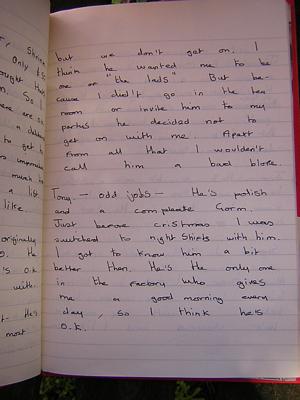 r, Shrin
Only 1s
ought then
n. So I
ere are so
a dabb
to get b
rs unpreda
much to
a list
like.
originally
g. He
's O.K
with.
t- He's
most
but we don't get on. I
think he wanted me to be
one of "the lads" But be-
cause I did't go in the tea
room or invite him to my
parties he decided not to
get on with me. Apart
from all that I wouldn't
call him a bad bloke.
Tony - odd jobs - He's polish
and a compleate Gorm.
Just before cristmas I was
switched to night shifts with him.
I got to know him a bit
better then. He's the only one
in the factory who gives
me a good morning every
day, so I think he's
O.K.